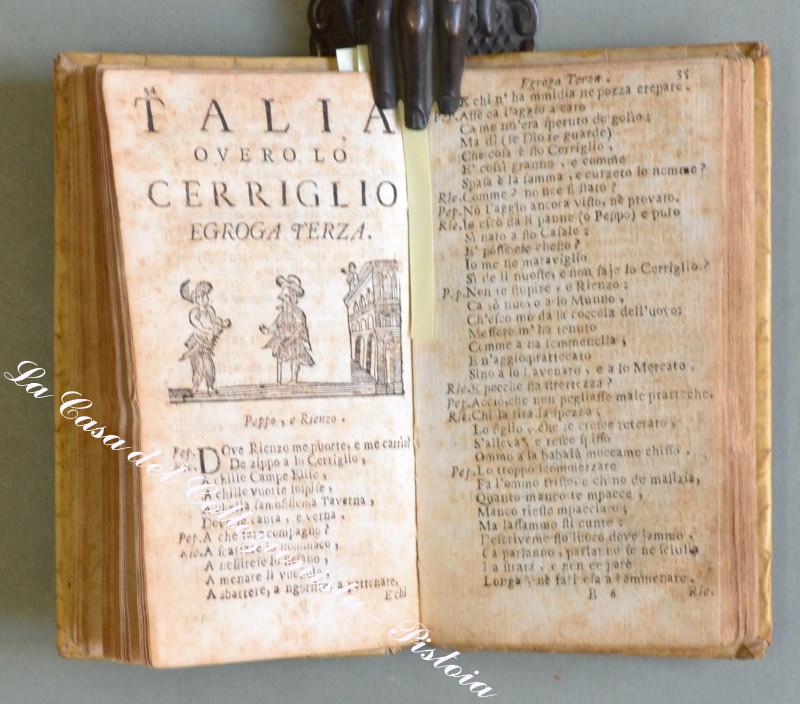 34
TALIA
OVERO LO
CERRIGLIO
EGROGA TERZA.
Peppo, e Rienzo.
Pep. DOve Rienzo me puorte, e me carrie?
De zippo a lo Cerriglio,
chille Campe Elise,
chille vuorte
famosissema Taverna,
canta, e verna.
Pep. A che fare compagno?
Rie. A
A
A menare li
A sbattere, a pettenare,
E chi
Egroga Terza. 35
E chi n' ha mmidia ne pozza crepare.
Pep. Affe ca l'aggio a caro
Ca me nn'era speruto de golio;
Ma dì (se Dio te guarde)
Che cosa è sto Cerriglio,
E' cosa granno, e comme
Spasa è la famma, e curzeto lo nomme?
Rie. Comme? no nce si stato?
Pep. Nò l'aggio ancora visto, nè provato.
Rie. Io esco da li panne (o Peppo) e puro
Si nato a sto Casale:
E' possibele chesto?
Io me ne maraviglio
Sì de li nuoste, e non saje lo Cerriglio?
Pep. Non te stupire, o Rienzo:
Ca sò nuovo a lo Munno,
Ch'esco mò da la coccola dell'uovo:
Messere m' ha tenuto
Comme a na femmenella,
E n'aggio prattecato
Sino a lo Lavenaro, e a lo Mercato.
Rie. E pecche sta strettezza?
Pep. Acciò, che non pegliasse male pratteche.
Rie. Chi la tira la spezza;
Lo figlio, che se cresce reterato,
S'alleva, e resce spisso
Ommo a la babalà moccame chisso.
Pep. Lo troppo scommerzare
Fa l'ommo tristo, e chino de malizia,
Quanto manco te mpacce,
Manco rieste mpacciato;
Ma lassammo sti cunte:
Descriveme sto luoco dove jammo,
Ca parlanno, parlanno se ne sciulia
La strata, e non ce pare
Longa, nè fatecosa a cammenare.
B 6 Rie.
La Casa del Collezionista - Pistoia